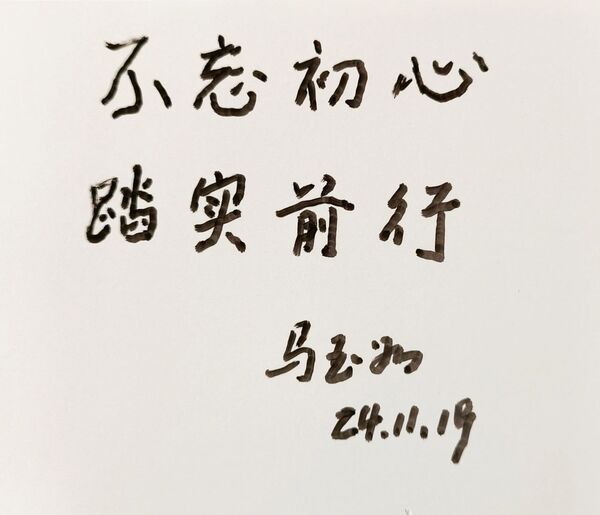 不忘初心
踏实前行
马玉
24.11.19